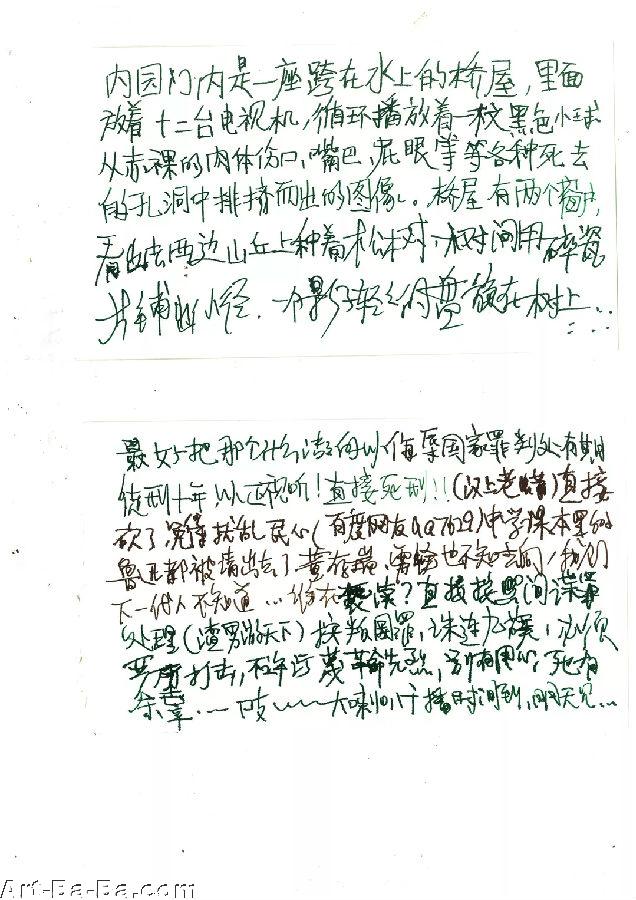 内园门内是一座跨在水上的桥屋，里面
放着十二台电视机，循环播放着一枚黑色小球
从赤裸的肉体伤口，嘴巴，屁眼等等各种死去
的孔洞中排挤而出的图像。桥屋有两个窗户，
看出去两边山丘上种着松树，树间用碎瓷
片铺成小径．影子轻轻的盘旋在树上…
最好把那个什么清向以侮辱国家罪判处有期
徒刑十年以正视听！直接死刑！！（汉上老嘴）直接
砍了 免得扰乱民心（百度网友qq7629）中学课本里的
鲁迅都被请出去了 黄存瑞、雷锋也不知去向，我们
下一代人不知道…谁在亵渎？直接按照间谍罪
处理（渣男游天下）按叛国罪，诛连九族，必须
严肃打击，污蔑革命先烈，别有用心，死有
余辜…吱……大喇叭广播时间到，明天见…
Art-Ba-Ba.com